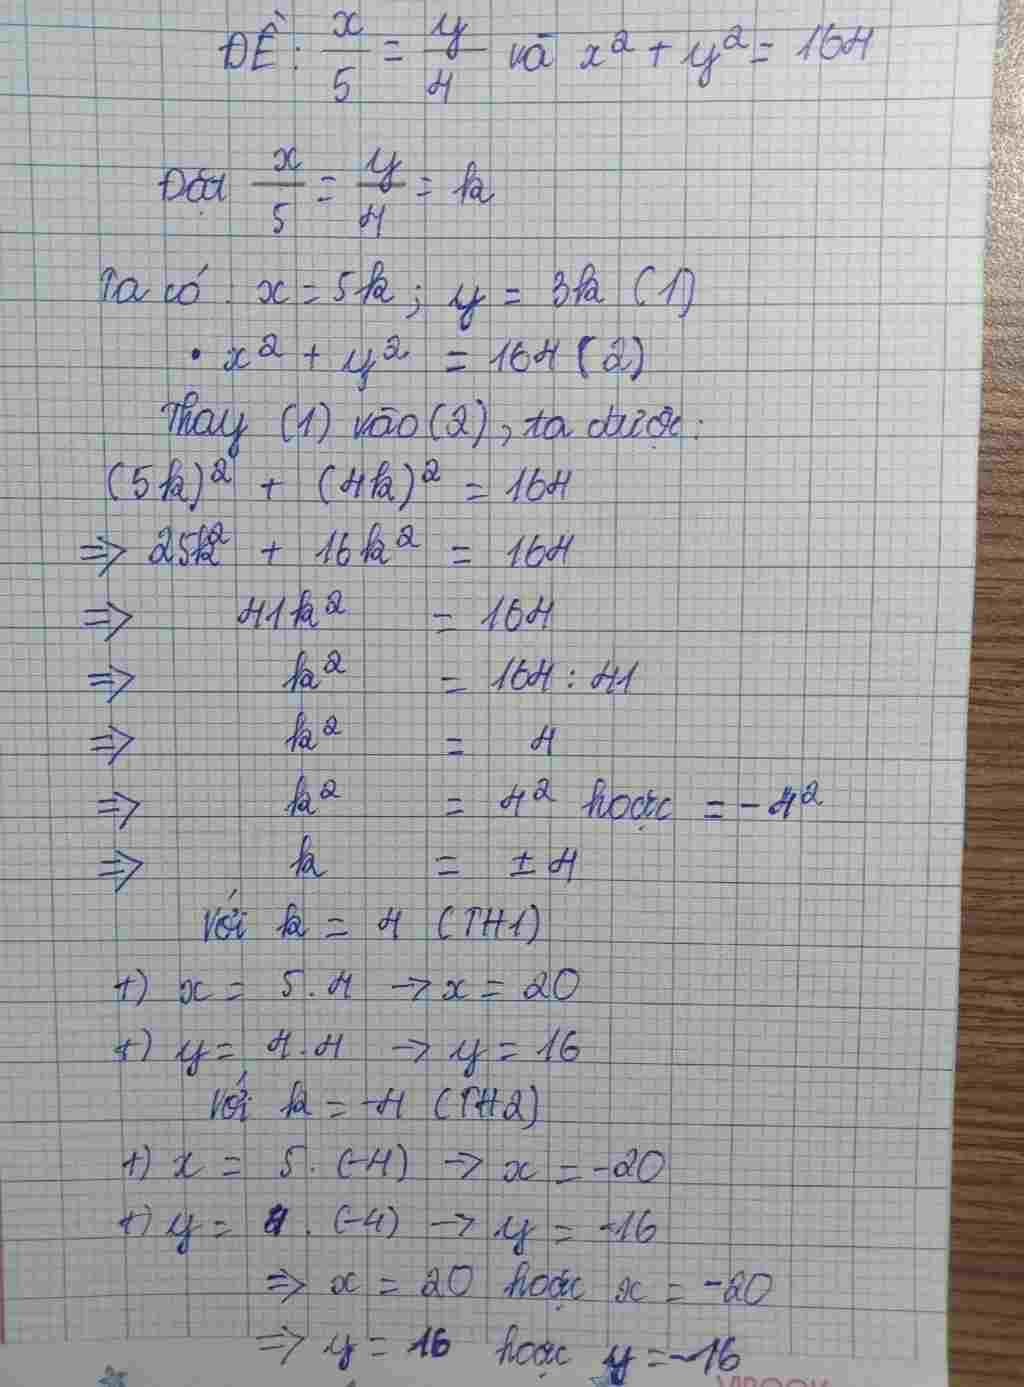 ĐỀ: x/5 = y/4 và x² + y² = 164
Đặt x/5 = y/4 = k
Ta có x = 5k; y = 3k (1)
• x² + y² = 164 (2)
Thay (1) vào (2), ta được:
(5k)² + (4k)² = 164
=> 25k² + 16k² = 164
=> 41k² = 164
=> k² = 164 : 41
=> k² = 4
=> k² = 4² hoặc = -4²
=> k = ± 4
Với k = 4 (TH1)
+) x = 5.4 → x = 20
+) y = 4.4 → y = 16
Với k = -4 (TH2)
+) x = 5. (-4) → x = -20
+) y = 4. (-4) → y = -16
=> x = 20 hoặc x = -20
=> y = 16 hoặc y = -16